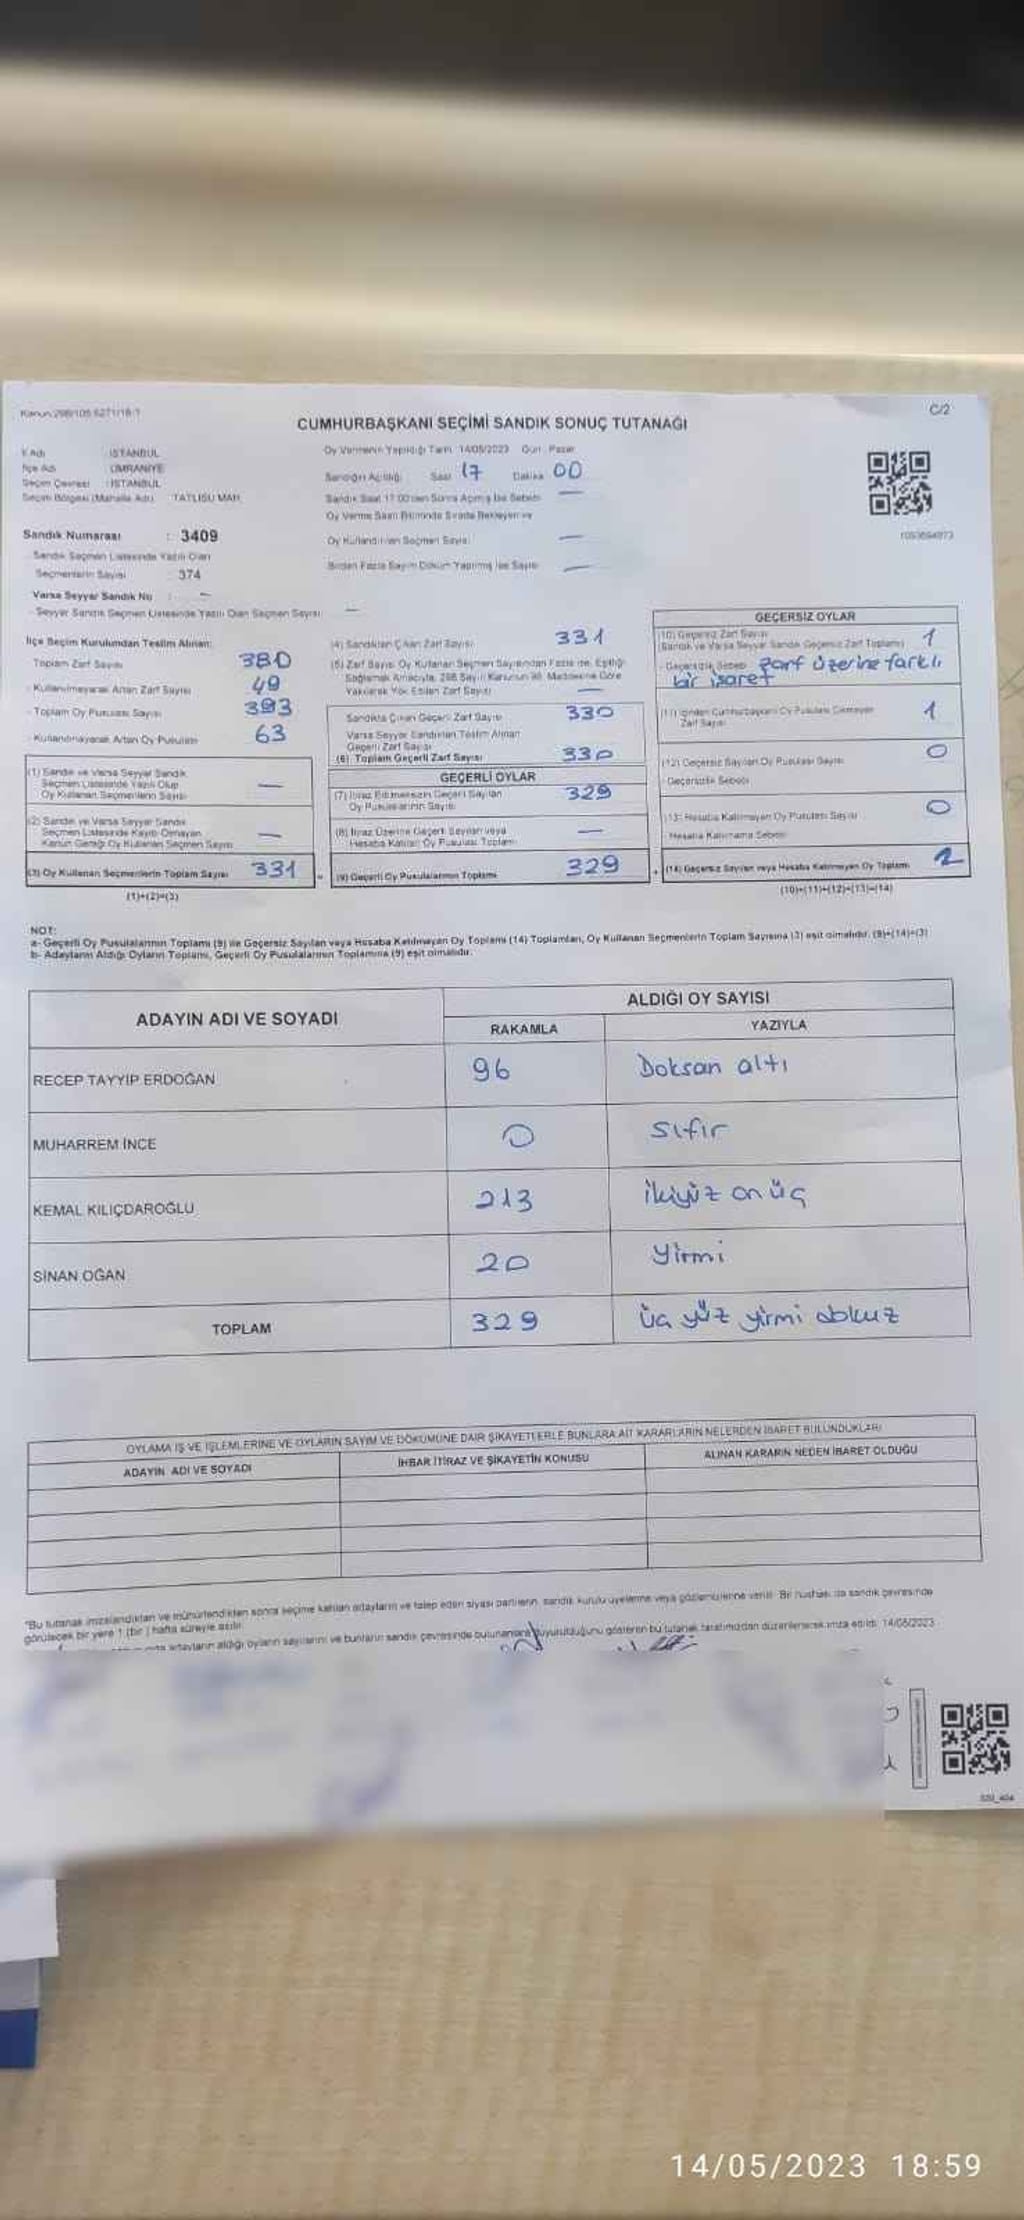 Kanun:298/105 6271/18-1
C/2
CUMHURBAŞKANI SEÇİMİ SANDIK SONUÇ TUTANAĞI
İl Adı : İSTANBUL
İlçe Adı : ÜMRANİYE
Seçim Çevresi : İSTANBUL
Seçim Bölgesi (Mahalle Adı) : TATLISU MAH.
Sandık Numarası : 3409
Sandık Seçmen Listesinde Yazılı Olan
Seçmenlerin Sayısı : 374
Varsa Seyyar Sandık No : –
Seyyar Sandık Seçmen Listesinde Yazılı Olan Seçmen Sayısı: –
Oy Vermenin Yapıldığı Tarih: 14/05/2023 Gün: Pazar
Sandığın Açıldığı: Saat 17 Dakika 00
Sandık Saat 17:00'den Sonra Açılmış İse Sebebi: –
Oy Verme Saati Bitiminde Sırada Bekleyen ve
Oy Kullandırılan Seçmen Sayısı: –
Birden Fazla Sayım Döküm Yapılmış İse Sayısı: –
İlçe Seçim Kurulundan Teslim Alınan:
Toplam Zarf Sayısı 380
Kullanılmayarak Artan Zarf Sayısı 49
Toplam Oy Pusulası Sayısı 393
Kullanılmayarak Artan Oy Pusulası 63
(1) Sandık ve Varsa Seyyar Sandık
Seçmen Listesinde Yazılı Olup
Oy Kullanan Seçmenlerin Sayısı –
(2) Sandık ve Varsa Seyyar Sandık
Seçmen Listesinde Kayıtlı Olmayan
Kanun Gereği Oy Kullanan Seçmen Sayısı –
(3) Oy Kullanan Seçmenlerin Toplam Sayısı 331
(1)+(2)=(3)
(4) Sandıktan Çıkan Zarf Sayısı 331
(5) Zarf Sayısı Oy Kullanan Seçmen Sayısından Fazla ise, Eşitliği
Sağlamak Amacıyla, 298 Sayılı Kanunun 98. Maddesine Göre
Yakılarak Yok Edilen Zarf Sayısı –
Sandıkta Çıkan Geçerli Zarf Sayısı 330
Varsa Seyyar Sandıktan Teslim Alınan
Geçerli Zarf Sayısı
(6) Toplam Geçerli Zarf Sayısı 330
GEÇERLİ OYLAR
(7) İtiraz Edilmeksizin Geçerli Sayılan
Oy Pusulalarının Sayısı 329
(8) İtiraz Üzerine Geçerli Sayılan veya
Hesaba Katılan Oy Pusulası Toplamı –
(9) Geçerli Oy Pusulalarının Toplamı 329
GEÇERSİZ OYLAR
(10) Geçersiz Zarf Sayısı
(Sandık ve Varsa Seyyar Sandık Geçersiz Zarf Toplamı) 1
Geçersizlik Sebebi: Zarf üzerine farklı
bir işaret
(11) İçinden Cumhurbaşkanı Oy Pusulası Çıkmayan
Zarf Sayısı 1
(12) Geçersiz Sayılan Oy Pusulası Sayısı 0
Geçersizlik Sebebi:
(13) Hesaba Katılmayan Oy Pusulası Sayısı 0
Hesaba Katılmama Sebebi:
(14) Geçersiz Sayılan veya Hesaba Katılmayan Oy Toplamı 2
(10)+(11)+(12)+(13)=(14)
NOT:
a- Geçerli Oy Pusulalarının Toplamı (9) ile Geçersiz Sayılan veya Hesaba Katılmayan Oy Toplamı (14) Toplamları, Oy Kullanan Seçmenlerin Toplam Sayısına (3) eşit olmalıdır. (9)+(14)=(3)
b- Adayların Aldığı Oyların Toplamı, Geçerli Oy Pusulalarının Toplamına (9) eşit olmalıdır.
ADAYIN ADI VE SOYADI
ALDIĞI OY SAYISI
RAKAMLA YAZIYLA
RECEP TAYYİP ERDOĞAN 96 Doksan altı
MUHARREM İNCE 0 sıfır
KEMAL KILIÇDAROĞLU 213 ikiyüz on üç
SİNAN OĞAN 20 Yirmi
TOPLAM 329 üç yüz yirmi dokuz
OYLAMA İŞ VE İŞLEMLERİNE VE OYLARIN SAYIM VE DÖKÜMÜNE DAİR ŞİKAYETLERLE BUNLARA AİT KARARLARIN NELERDEN İBARET BULUNDUKLARI
ADAYIN ADI VE SOYADI İHBAR İTİRAZ VE ŞİKAYETİN KONUSU ALINAN KARARIN NEDEN İBARET OLDUĞU
*Bu tutanak imzalandıktan ve mühürlendikten sonra seçime katılan adayların ve talep eden siyasi partilerin, sandık kurulu üyelerine veya gözlemcilerine verilir. Bir nüshası da sandık çevresinde
görülecek bir yere 1 (bir) hafta süreyle asılır.
adayların aldığı oyların sayılarını ve bunların sandık çevresinde bulunanlara duyurulduğunu gösteren bu tutanak tarafımızdan düzenlenerek imza edildi. 14/05/2023
14/05/2023 18:59